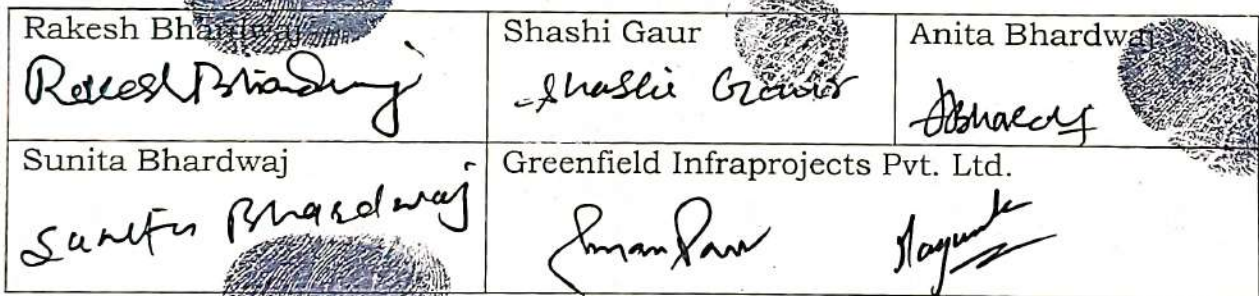 Rakesh Bhardwaj
Rakesh Bhardwaj
Shashi Gaur
Shashi Gaur
Anita Bhardwaj
ABhardwaj
Sunita Bhardwaj
Sunita Bhardwaj
Greenfield Infraprojects Pvt. Ltd.